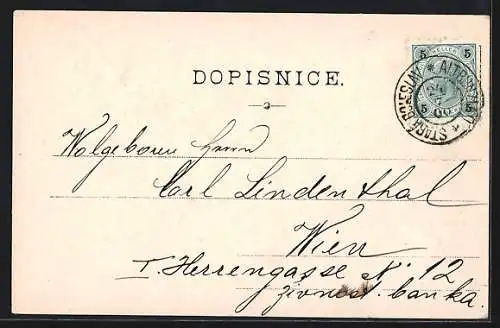 DOPISNICE.
5 HELLER 5
5 5
STARÁ BOLESLAV * ALTBUNZLAU *
Wolgeboren Herrn
Carl Lindenthal
Wien
I. Herrengasse N. 12
živnost. banka.